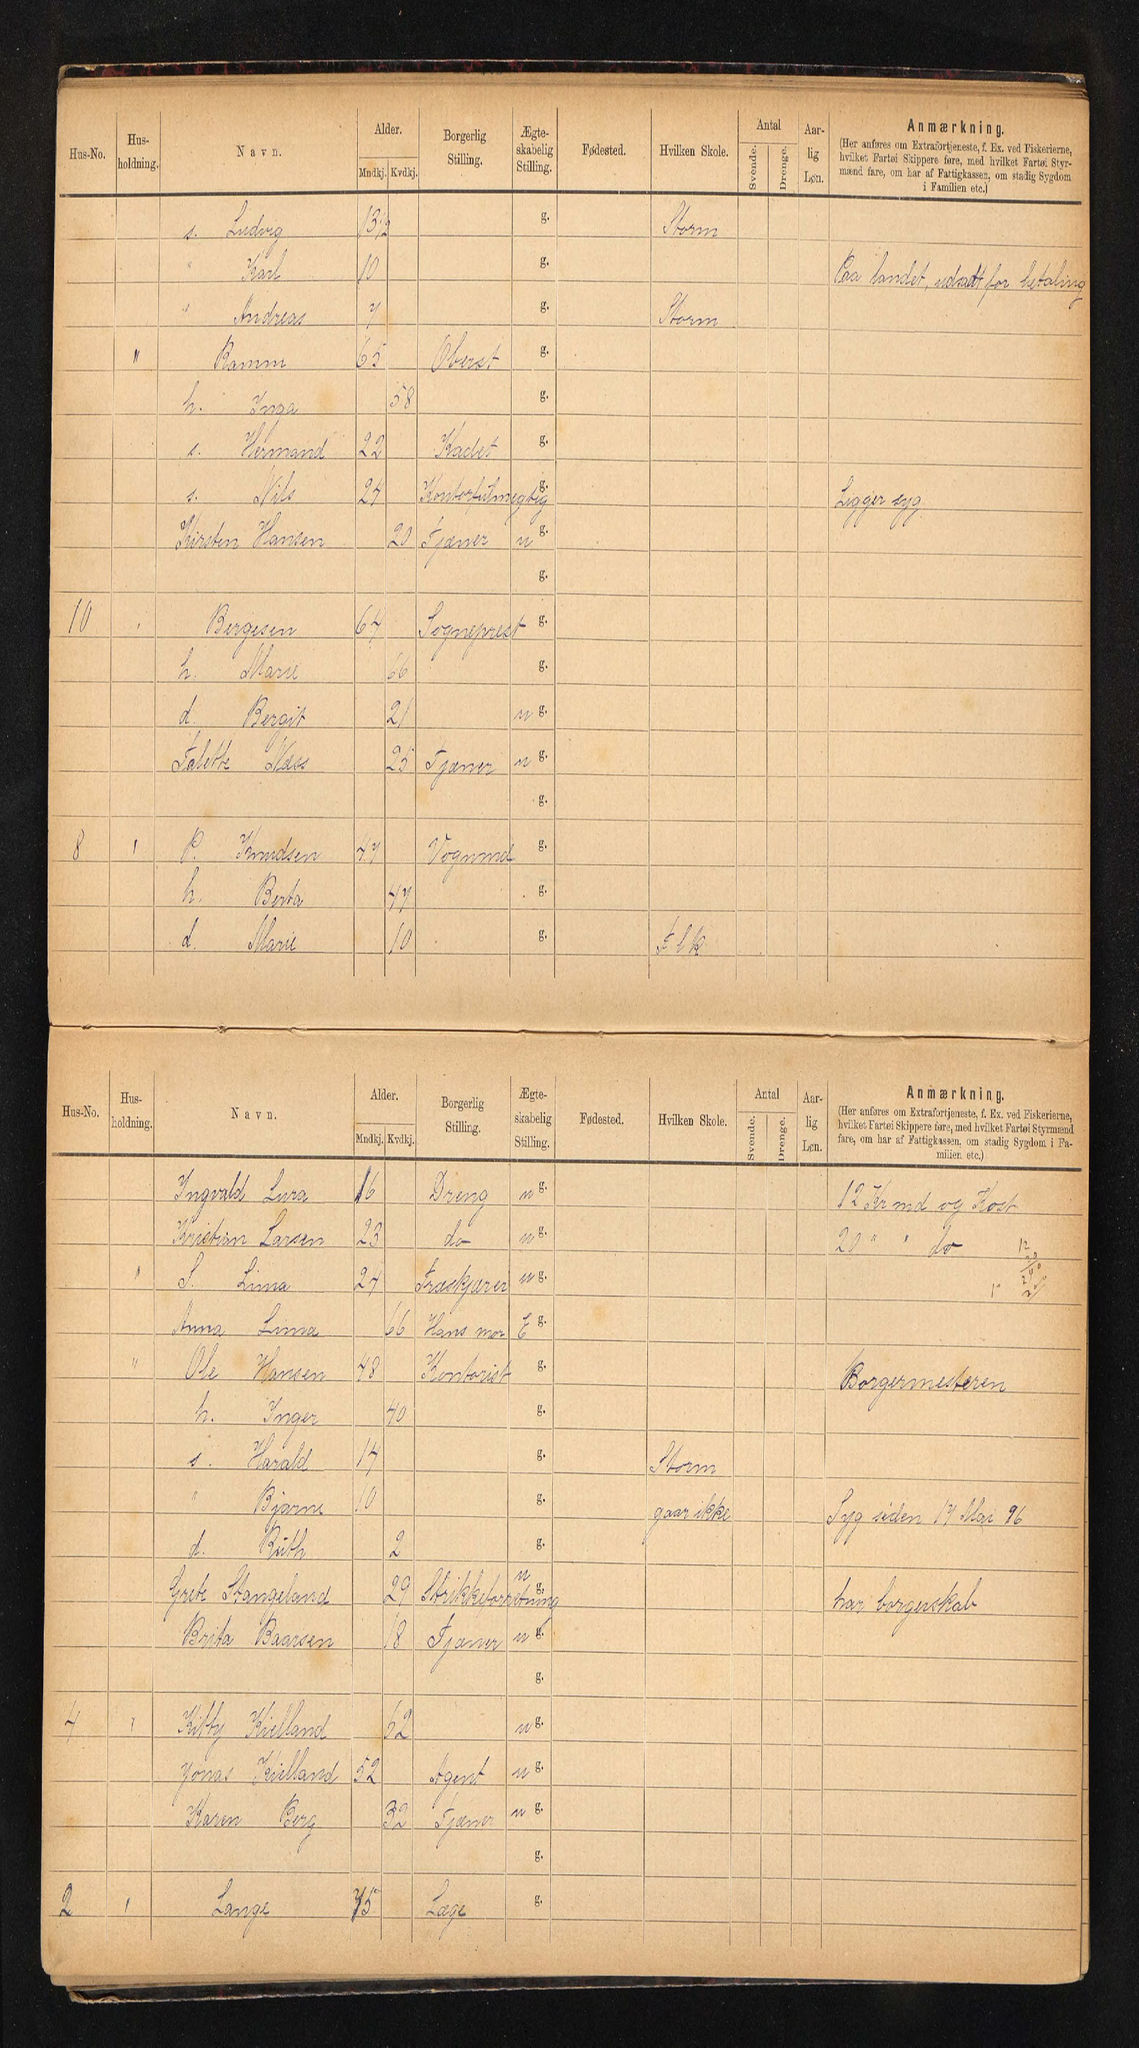 Hus-No. Hus-holdning. Navn. Alder. Mndkj. Kvdkj. Borgerlig Stilling. Ægte-skabelig Stilling. Fødested. Hvilken Skole. Antal Svende. Drenge. Aar-lig Løn. Anmærkning.
(Her anføres om Extrafortjeneste, f. Ex. ved Fiskerierne,
hvilket Fartøi Skippere føre, med hvilket Fartøi Styr-
mænd fare, om har af Fattigkassen, om stadig Sygdom
i Familien etc.)
s. Ludvig 13 1/2 g. Storm
" Karl 10 g. Paa landet, udsatt for betaling
" Andreas 7 g. Storm
" Ramm 65 Oberst g.
h. Inga 58 g.
s. Hermand 22 Kadet g.
s. Nils 24 Kontorfulmegtig g. Ligger syg
Kirsten Hansen 20 Tjæner u g.
g.
10 Bergesen 67 Sogneprest g.
h. Marie 66 g.
d. Bergit 21 u g.
Talette Næss 25 Tjæner u g.
g.
8 P. Knudsen 47 Vognmd g.
h. Berta 47 g.
d. Marie 10 g. Flk
Hus-No. Hus-holdning. Navn. Alder. Mndkj. Kvdkj. Borgerlig Stilling. Ægte-skabelig Stilling. Fødested. Hvilken Skole. Antal Svende. Drenge. Aar-lig Løn. Anmærkning.
(Her anføres om Extrafortjeneste, f. Ex. ved Fiskerierne,
hvilket Fartøi Skippere føre, med hvilket Fartøi Styrmænd
fare, om har af Fattigkassen, om stadig Sygdom i Fa-
milien etc.)
Ingvald Lura 16 Dreng u g. 12 Kr md og Kost
Kristian Larsen 23 do u g. 20 " " do
" S. Lima 24 Træskjærer u g.
Anna Lima 66 Hans mor E g.
" Ole Hansen 48 Kontorist g. Borgermesteren
h. Inger 40 g.
s. Harald 14 g. Storm
" Bjarne 10 g. gaar ikke Syg siden 17 Mai 96
d. Ruth 2 g.
Grete Stangeland 29 Strikkeforretning u g. har borgerskab
Brita Baarsen 18 Tjæner u g.
g.
4 Kitty Kielland 52 u g.
Jonas Kielland 52 Agent u g.
Karen Berg 32 Tjæner u g.
g.
2 Lange 75 Læge g.